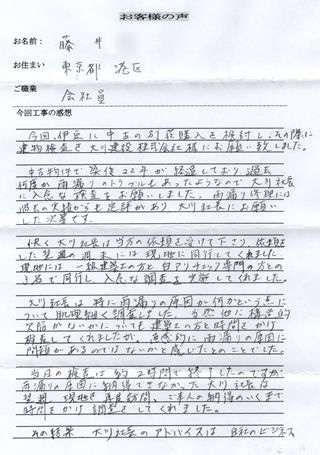 お客様の声
お名前： 藤井
お住まい 東京都 港区
ご職業 会社員
今回工事の感想
今回、伊豆に中古の別荘購入を検討し、その際に
建物検査を大川建設株式会社様にお願い致しました。
中古物件で築後22年が経過しており、過去
何度か雨漏りのトラブルもあったようなので大川社長
に入念な検査をお願いしました。雨漏り修理には
過去の実績からも定評があり、大川社長にお願い
した次第です。
快く大川社長は当方の依頼を受けて下さり、依頼を
した翌週の週末には現地に同行してくれました。
現地には一級建築士の方と白アリチェック専門の方との
3名で同行し、入念な調査を実施してくれました。
大川社長は特に雨漏りの原因が何かという点に
ついて肌理細く調査しました。当然他に構造的
欠陥がないかについても建築士の方と時間をかけ
検査してくれましたが、直感的に雨漏りの原因に
問題があるのではないかと感じたとのことでした。
当日の検査は約2時間で終了したのですが
雨漏りの原因に納得できなかった大川社長は
翌週、現地を再度訪問、ご本人の納得のいくまで
時間をかけ調査をしてくれました。
その結果、大川社長のアドバイスは、自社のビジネス